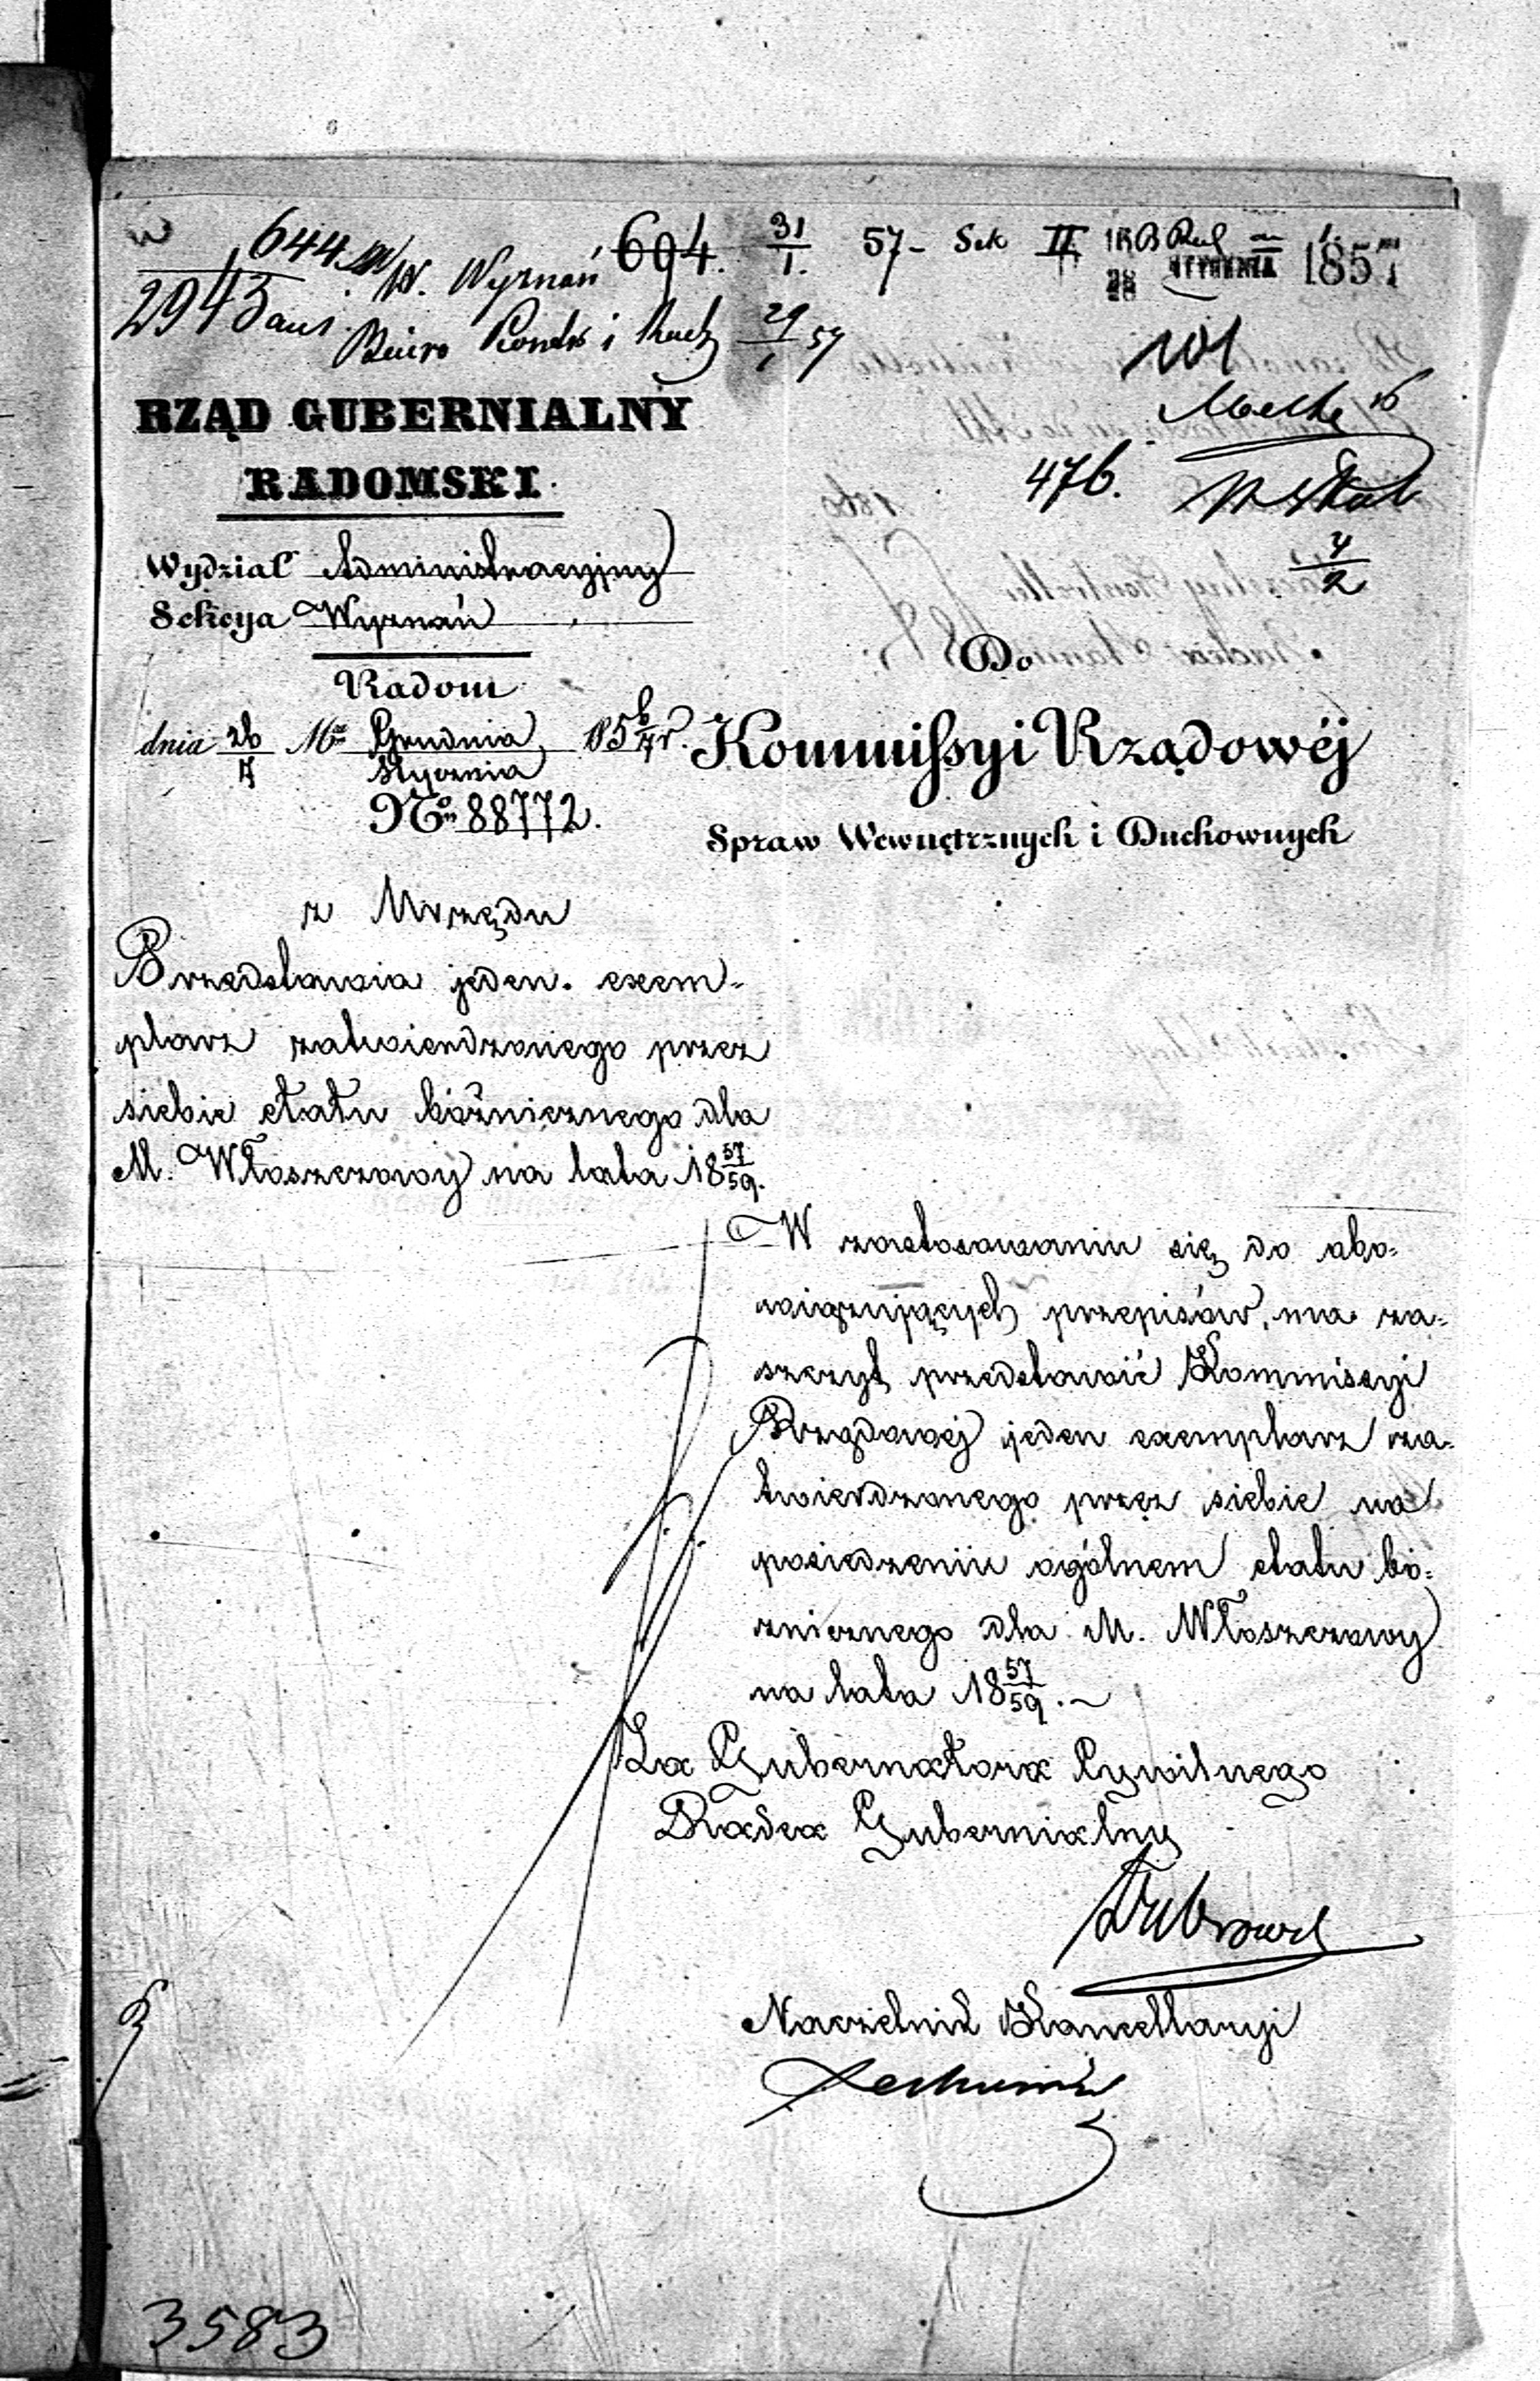 644 W. Wyznań 694. 31/1. 57 - Sek II
2943 Biuro Kontr i Rach 29/1 57
1857
101
476.
4/2
RZĄD GUBERNIALNY
RADOMSKI
Wydział Administracyjny
Sekcya Wyznań
Radom
dnia 26/7 Mca Grudnia/Stycznia 185 6/7 r.
No 88772.
Do
Kommissyi Rządowéj
Spraw Wewnętrznych i Duchownych
z Urzędu
Przedstawia jeden exem-
plarz zatwierdzonego przez
siebie etatu bóżnicznego dla
M. Włoszczowy na lata 18 57/59.
W zastosowaniu się do obo-
wiązujących przepisów, ma za-
szczyt przedstawić Kommissyi
Rządowej jeden exemplarz za-
twierdzonego przez siebie na
posiedzeniu ogólnem etatu bó-
żnicznego dla M. Włoszczowy
na lata 18 57/59.
Za Gubernatora Cywilnego
Radca Gubernialny
Naczelnik Kancellaryi
3583